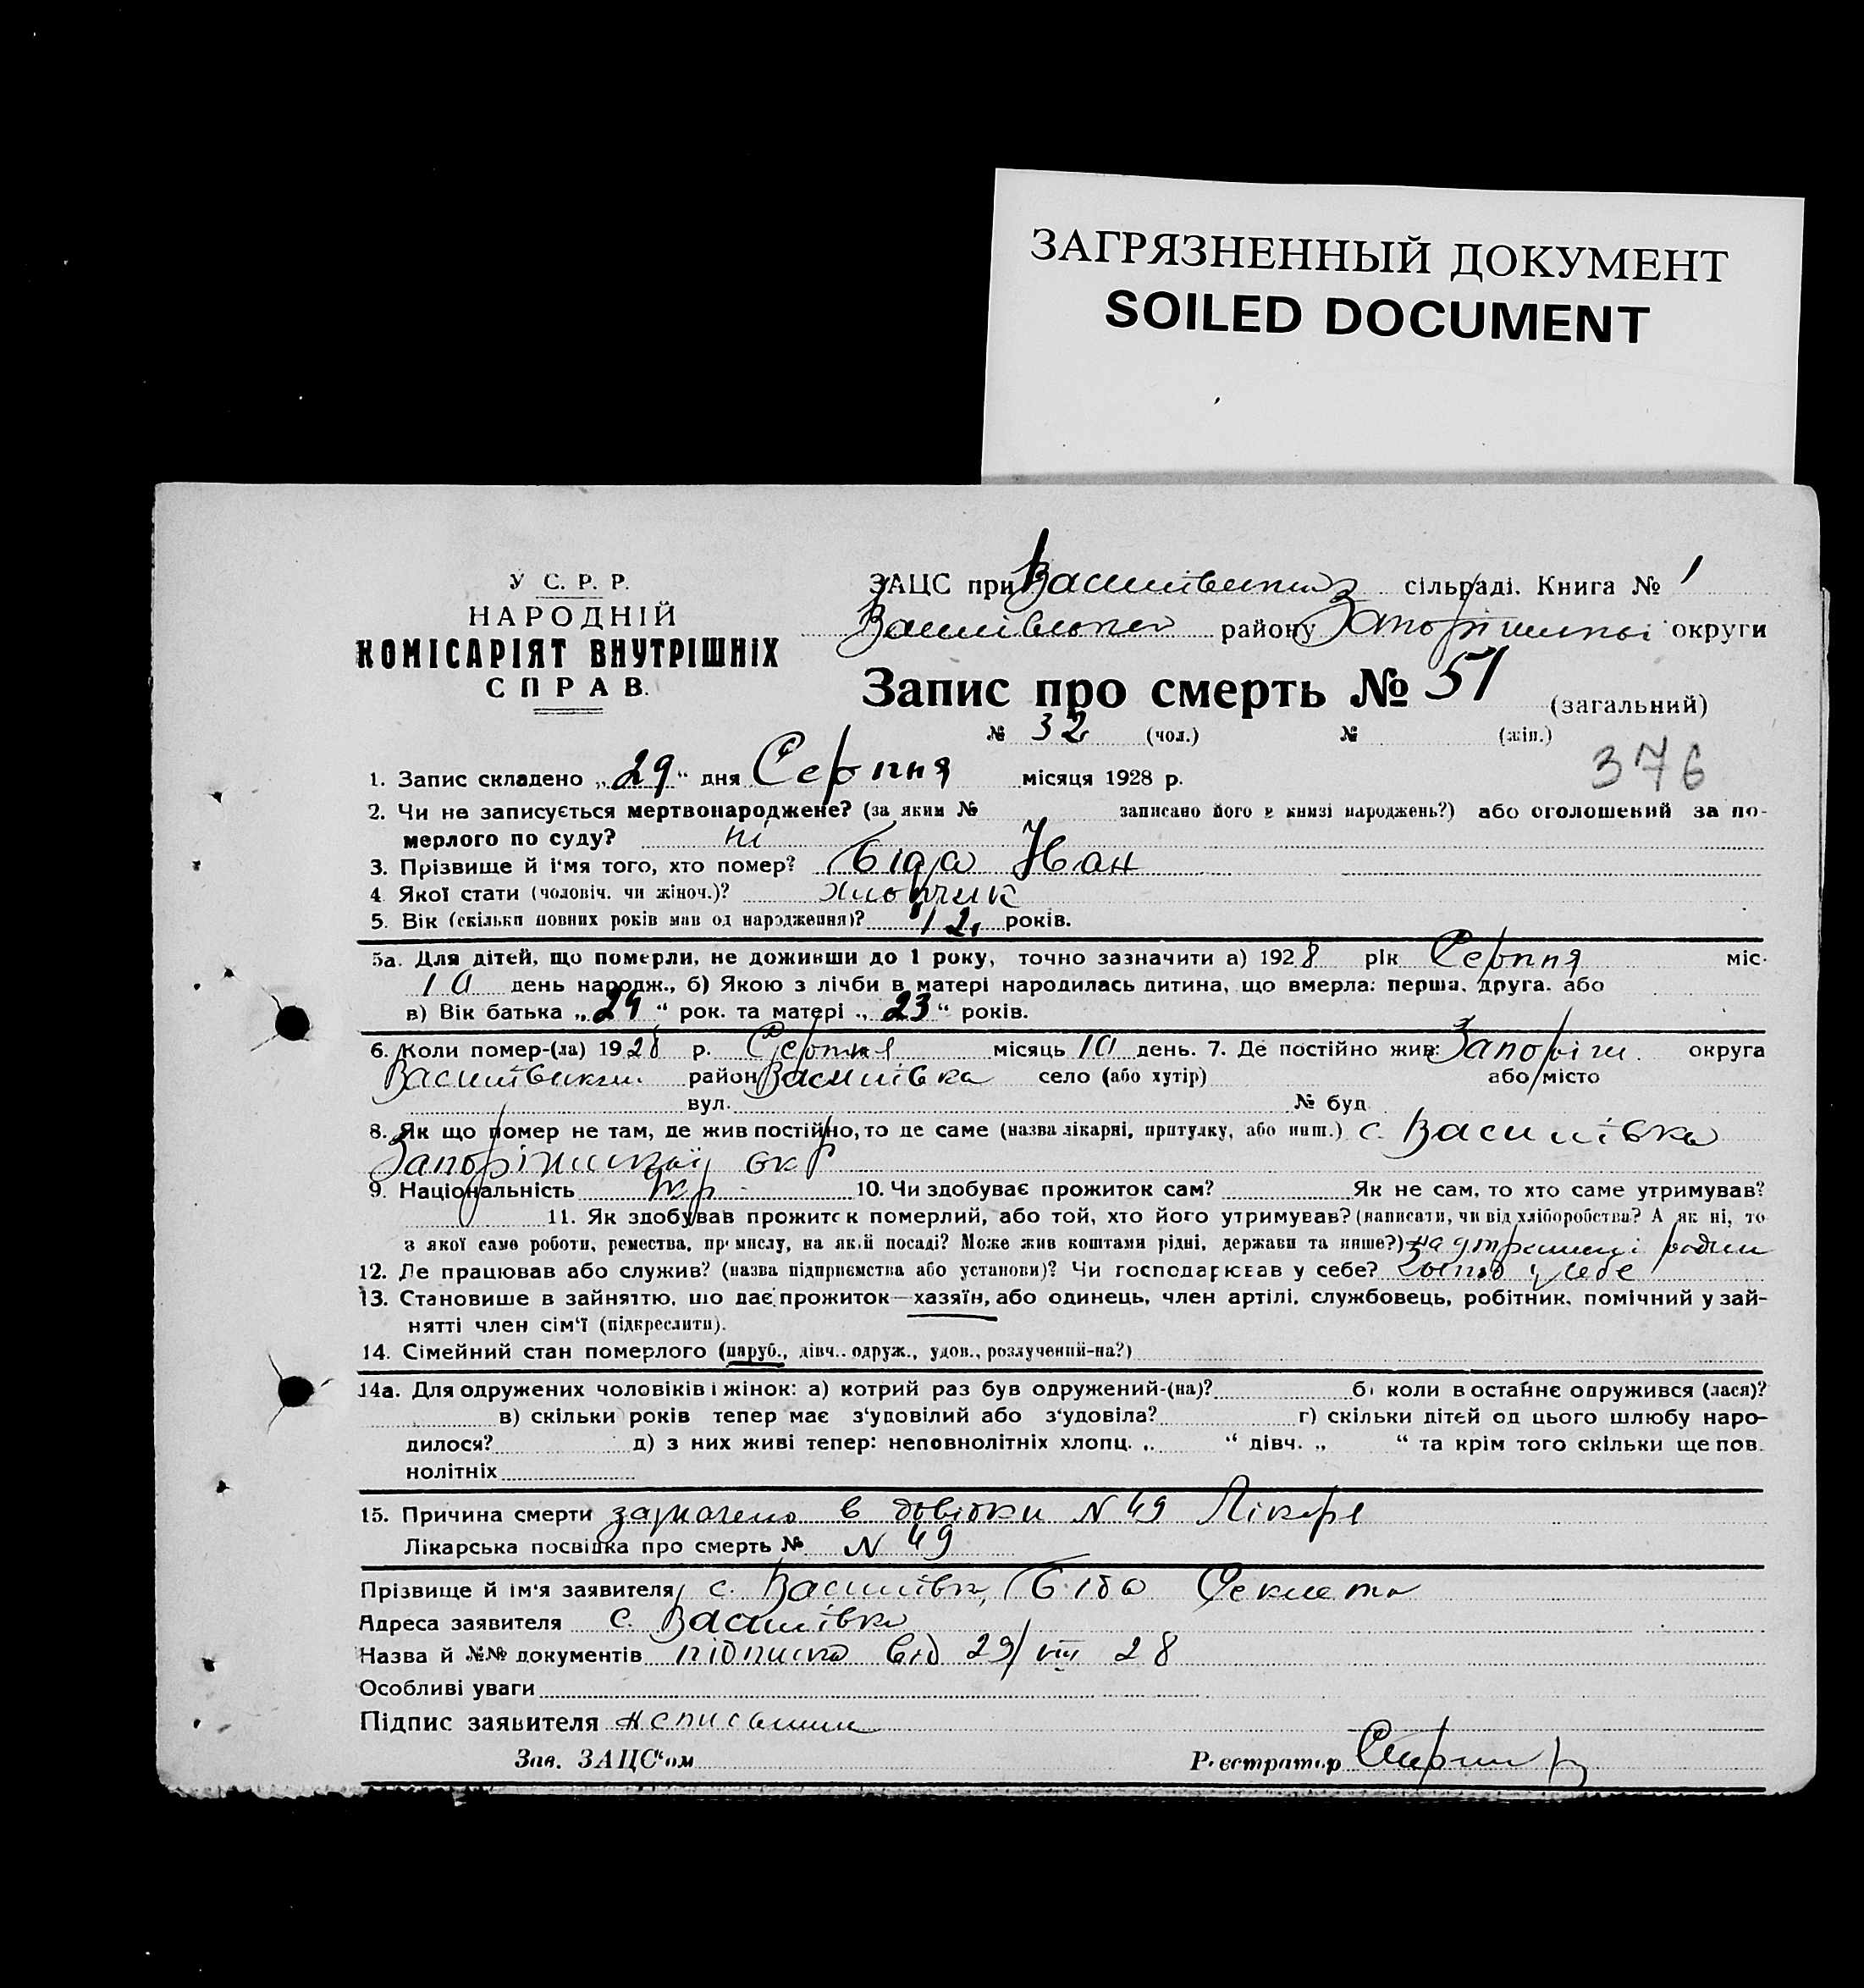 ЗАГРЯЗНЕННЫЙ ДОКУМЕНТ
SOILED DOCUMENT
У С. Р. Р.
НАРОДНІЙ
КОМІСАРІЯТ ВНУТРІШНІХ
СПРАВ.
ЗАЦС при сільраді. Книга № 1
району округи
Запис про смерть № 51 (загальний)
№ 32 (чол.) № (жін.)
376
1. Запис складено „29“ дня Серпня місяця 1928 р.
2. Чи не записується мертвонароджене? (за яким № записано його в книзі народжень?) або оголошений за по-
мерлого по суду? ні
3. Прізвище й і'мя того, хто помер? Біда Иван
4 Якої стати (чоловіч. чи жіноч.)? хлопчик
5. Вік (скільки повних років мав од народження)? 12 років.
5а. Для дітей, що померли, не доживши до 1 року, точно зазначити а) 1928 рік Серпня міс.
10 день народж., б) Якою з лічби в матері народилась дитина, що вмерла: перша, друга, або
в) Вік батька „24“ рок. та матері „23“ років.
6. Коли помер-(ла) 1928 р. Серпня місяць 10 день. 7. Де постійно жив: Запоріж. округа
район Василівка село (або хутір) або місто
вул. № буд.
8. Як що помер не там, де жив постійно, то де саме (назва лікарні, притулку, або инш.) с. Василівка
Запоріжської окр
9. Національність Укр. 10. Чи здобуває прожиток сам? Як не сам, то хто саме утримував?
11. Як здобував прожиток померлий, або той, хто його утримував? (написати, чи від хліборобства? А як ні, то
з якої саме роботи, ремества, промислу, на якій посаді? Може жив коштами рідні, держави та инше?) на утриманні родин
12. Де працював або служив? (назва підприємства або установи)? Чи господарював у себе? у себе
13. Становище в зайняттю, що дає прожиток—хазяїн, або одинець, член артілі, службовець, робітник, помічний у зай-
нятті член сім'ї (підкреслити).
14. Сімейний стан померлого (паруб., дівч., одруж., удов., розлучений-на?)
14а. Для одружених чоловіків і жінок: а) котрий раз був одружений-(на)? б) коли востаннє одружився (лася)?
в) скільки років тепер має з'удовілий або з'удовіла? г) скільки дітей од цього шлюбу наро-
дилося? д) з них живі тепер: неповнолітніх хлопц. „ “ дівч. „ “ та крім того скільки ще пов.
нолітніх
15. Причина смерти зазначено в довідки N 49 Лікаря
Лікарська посвідка про смерть № N 49
Прізвище й ім'я заявителя с. Василівка, Біда Фекла
Адреса заявителя с. Василівка
Назва й №№ документів підписка від 29/VIII 28
Особливі уваги
Підпис заявителя
Зав. ЗАЦС'ом Реєстратор